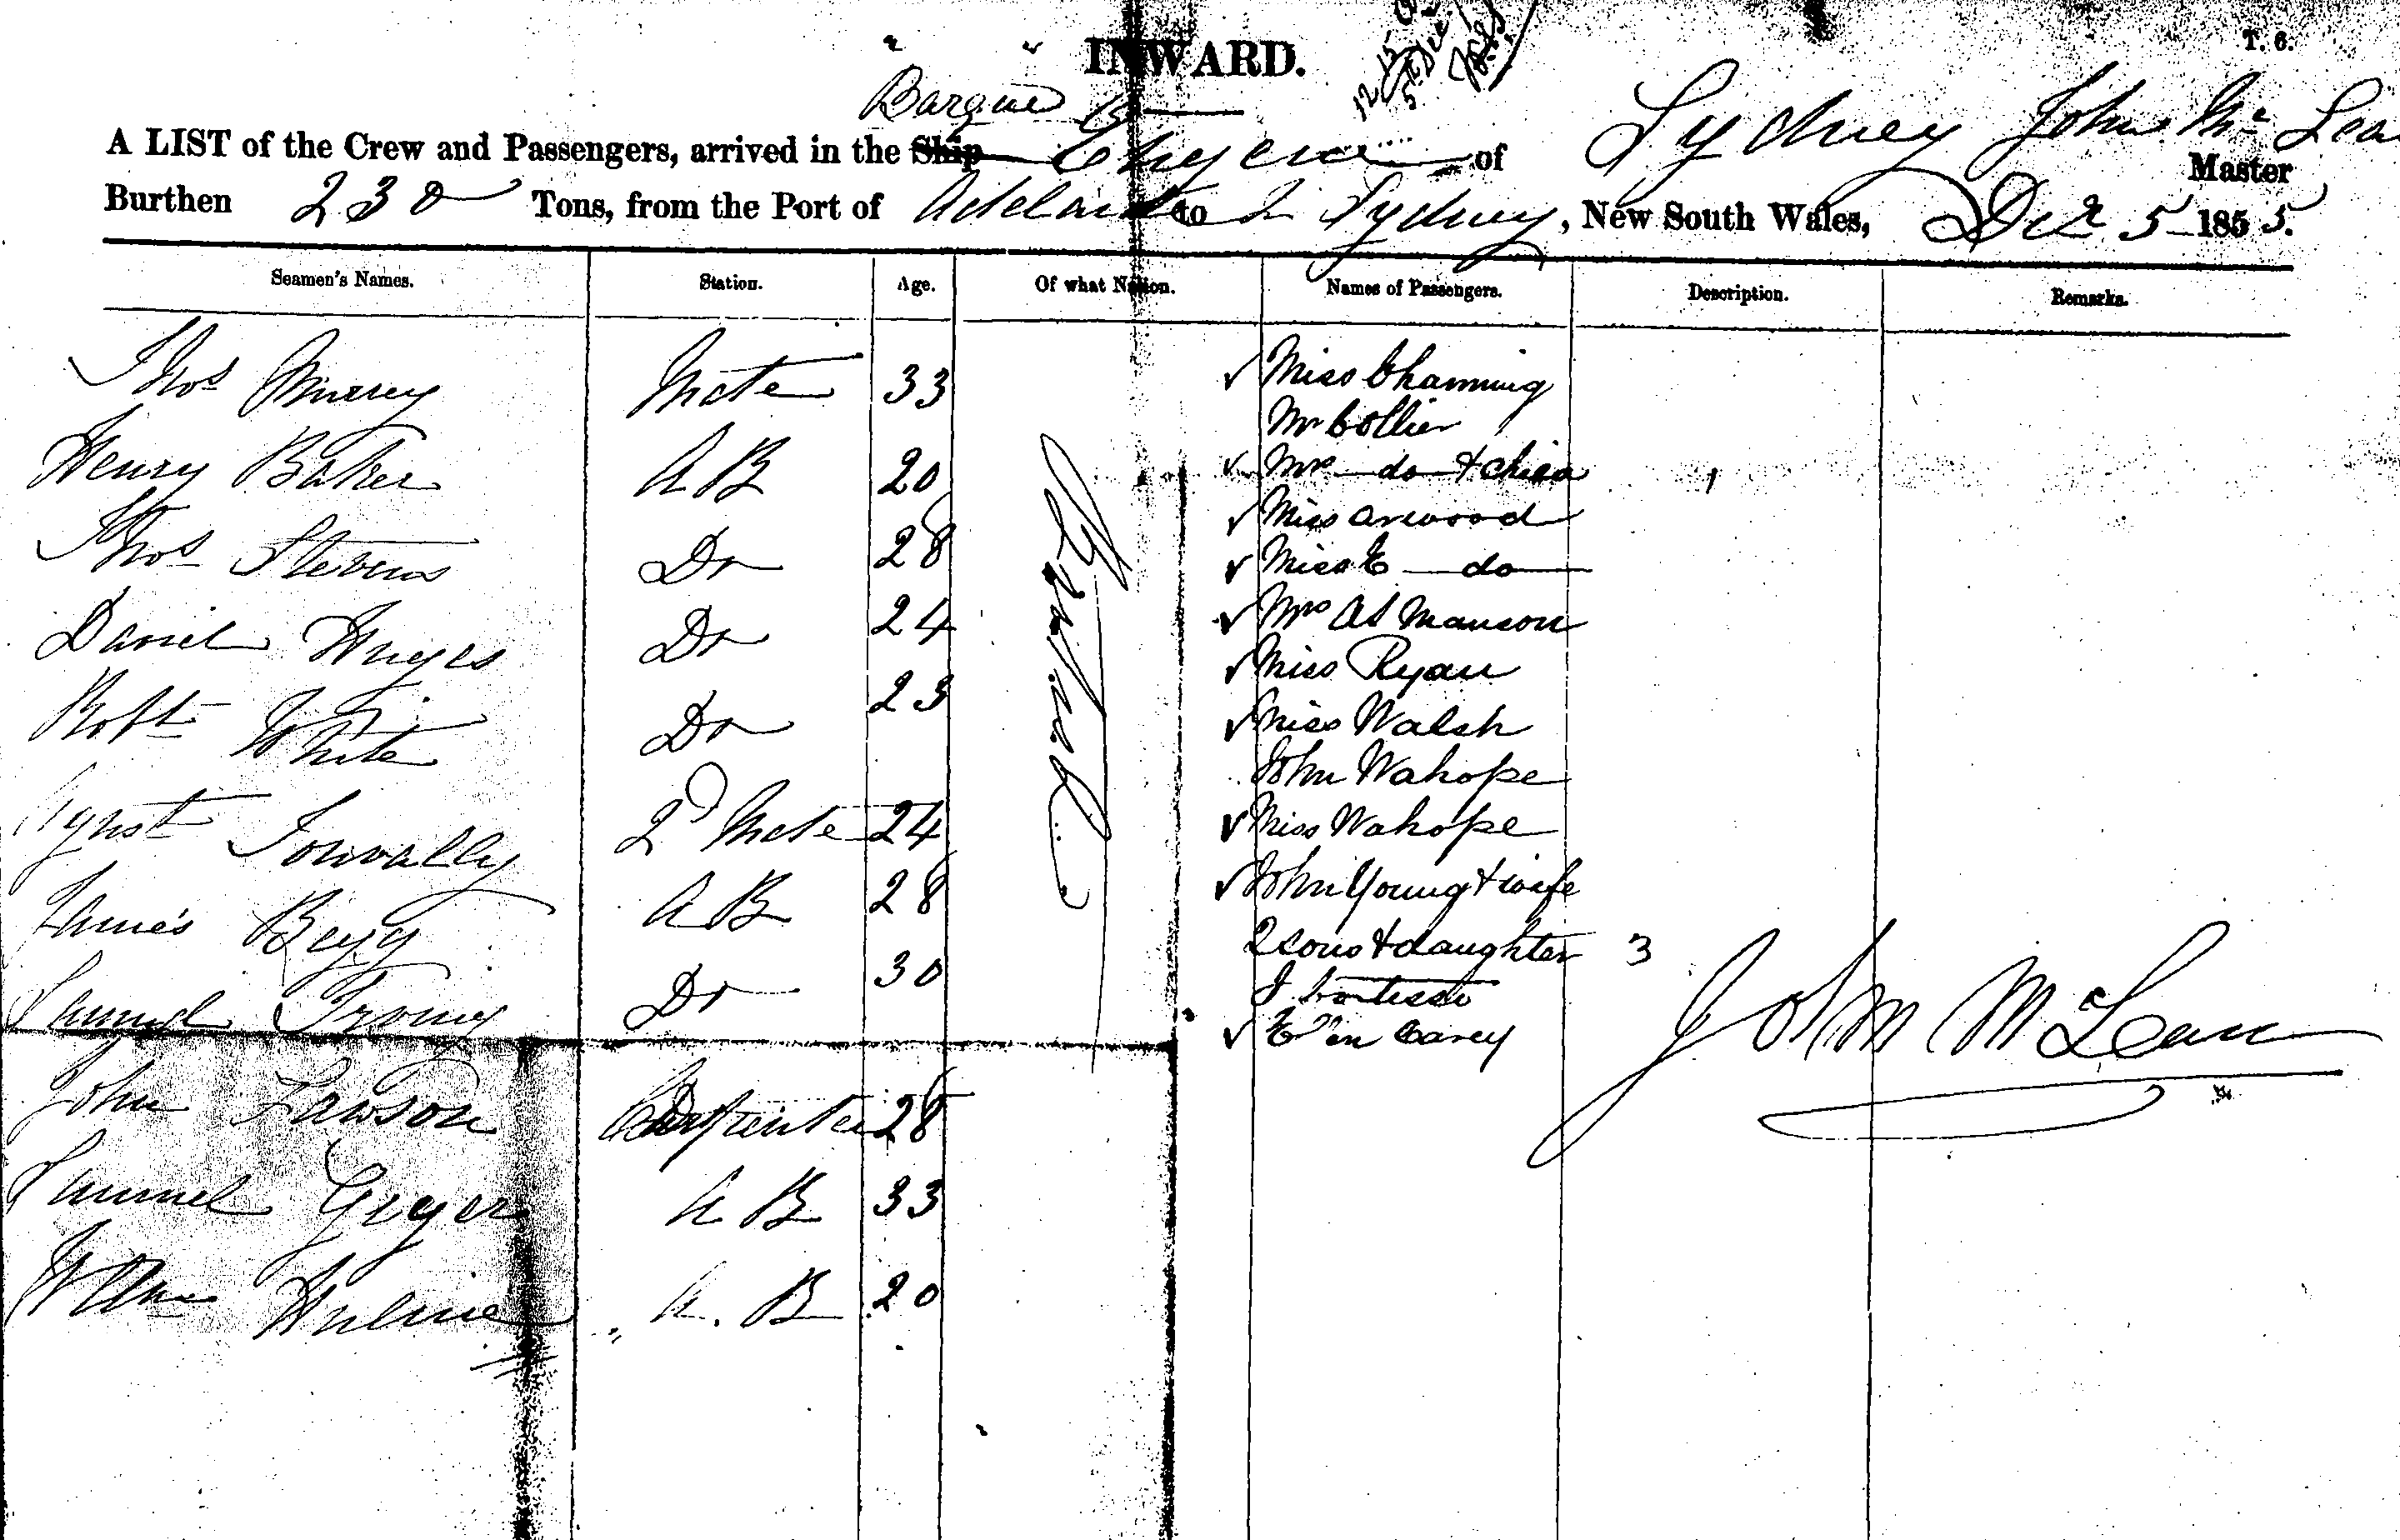 INWARD.
T. 6.
Barque
A LIST of the Crew and Passengers, arrived in the Ship of Sydney John Mc Lean Master
Burthen 230 Tons, from the Port of Adelaide to Sydney, New South Wales, Decr 5 1855.
Seamen's Names. Station. Age. Of what Nation. Names of Passengers. Description. Remarks.
Thos Murrey Mate 33
Henry Baker A B 20
Thos Stevens Do 28
Daniel Do 24
Robt White Do 23
2d Mate 24
James A B 28
Samuel Do 30
John Lawson Carpenter 28
Samuel A B 33
A. B 20
British
Miss Channing
Mr Collier
Mrs do & child
Miss
Miss E do
Mrs Manson
Miss Ryan
Miss Walsh
John Wahope
Miss Wahope
John Young & wife
2 sons & daughter 3
Carey
John McLean